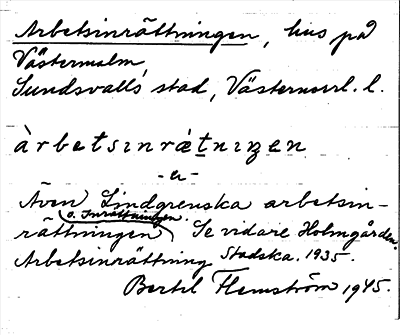 Arbetsinrättningen, hus på
Västermalm
Sundsvalls stad, Västernorrl. l.
àrbetsınrǽtnıŋen
-n-
Även Lindgrenska arbetsin-
o. Inrättningen.
rättningen Se vidare Holmgården.
Arbetsinrättning Stadska. 1935.
Bertil Flemström 1945.